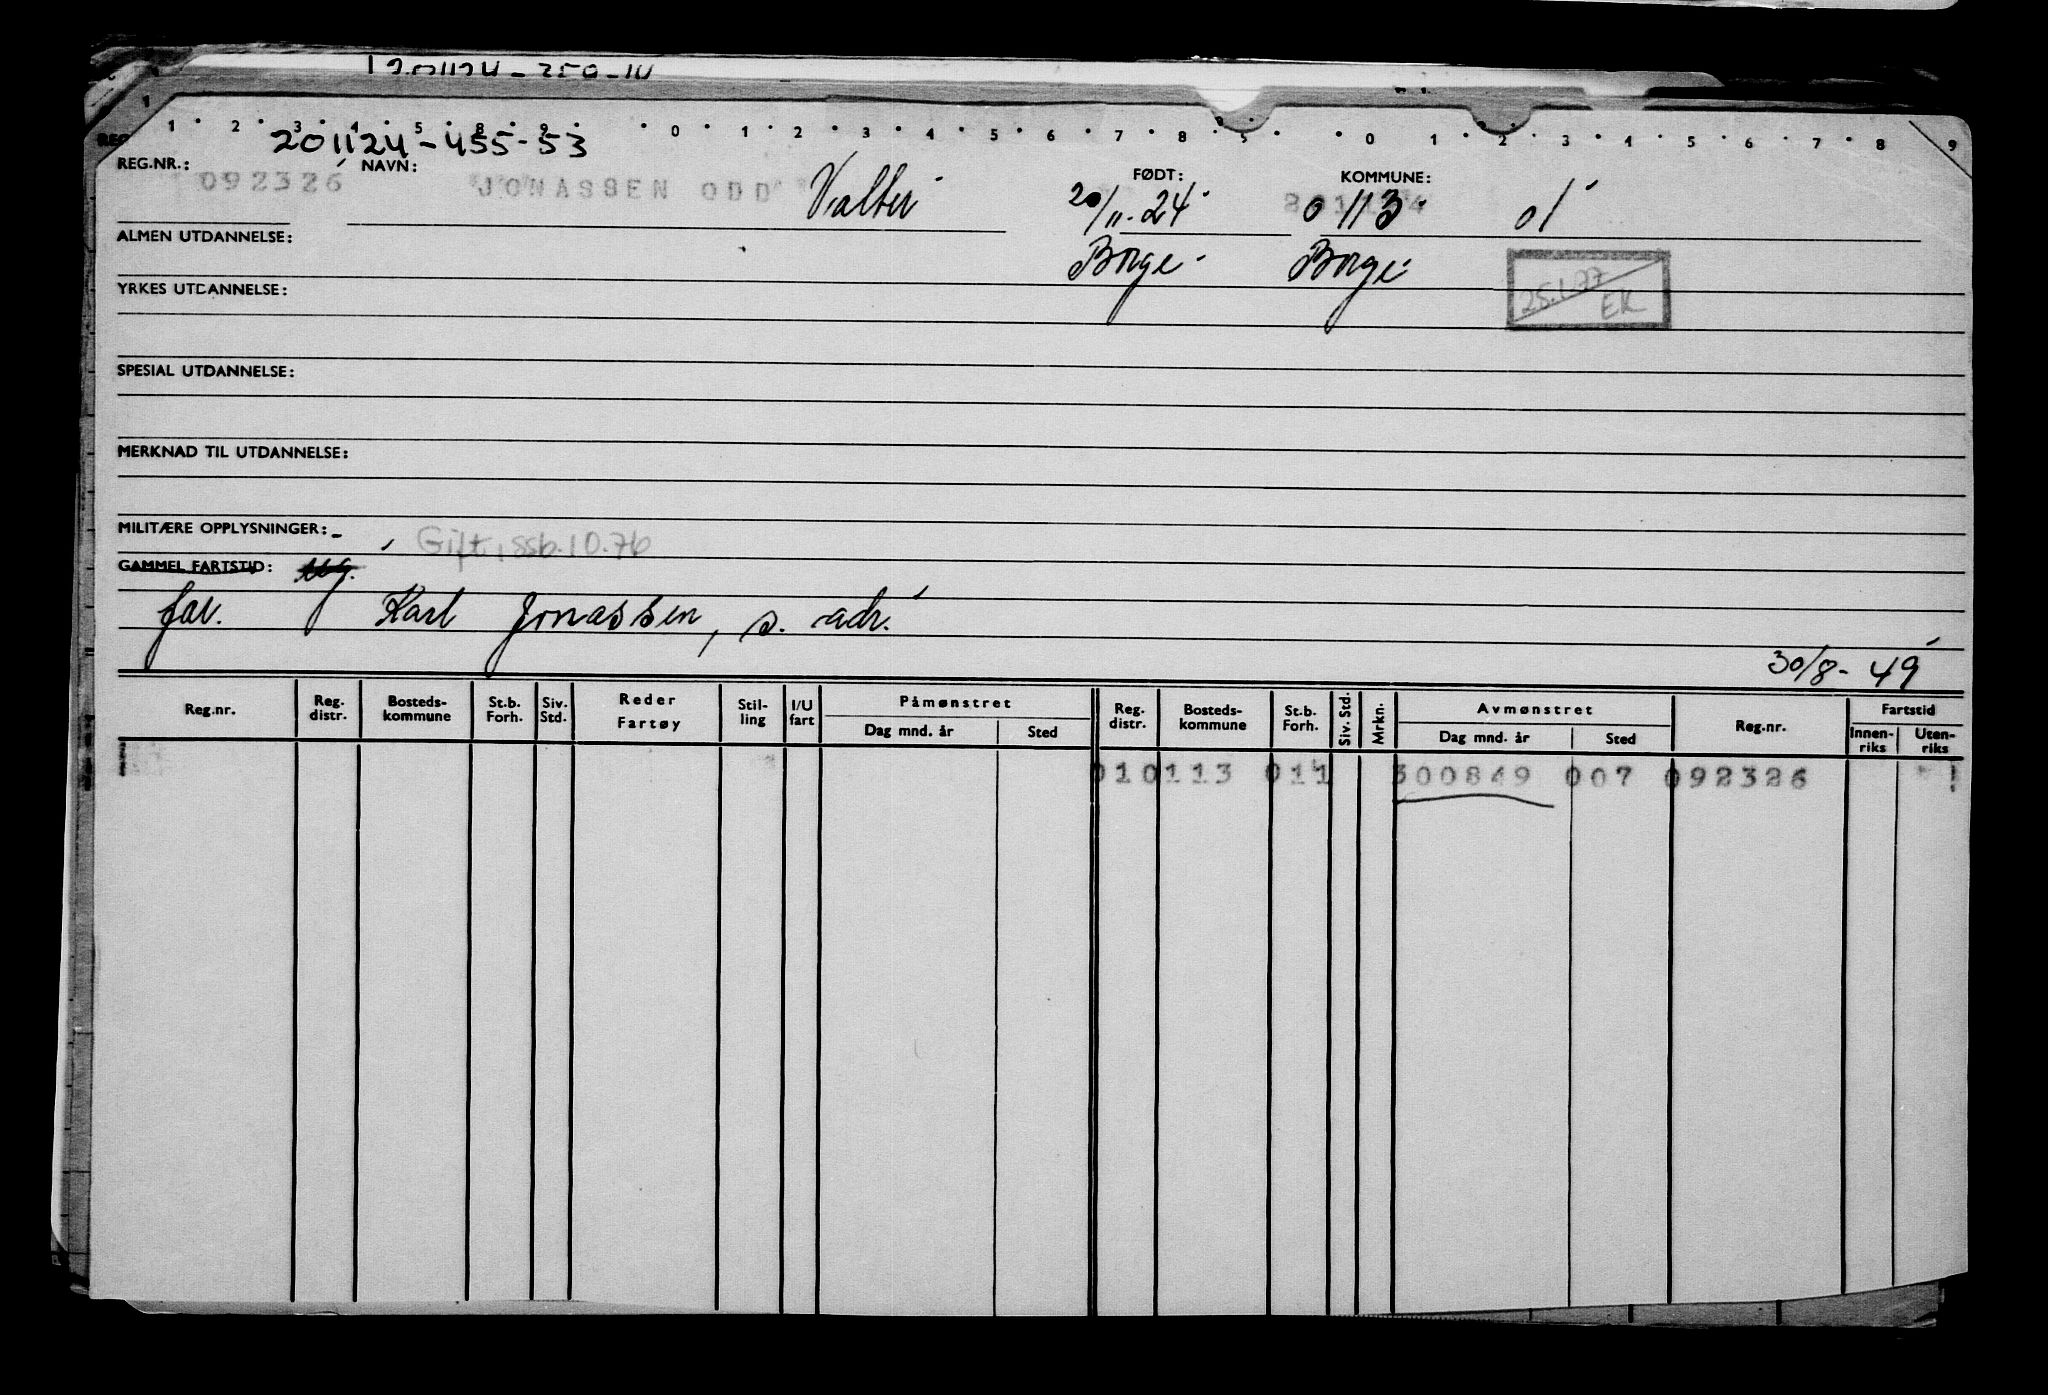 1 2 3 4 5 8 9 0 1 2 3 4 5 6 7 8 9 0 1 2 3 4 5 6 7 8 9
201124-455-53
REG.NR.: 092326 NAVN: JONASSEN ODD Valter FØDT: 20/11-24 KOMMUNE: 0113 01
ALMEN UTDANNELSE: Borge Borge
25.1.77
YRKES UTDANNELSE: EK
SPESIAL UTDANNELSE:
MERKNAD TIL UTDANNELSE:
MILITÆRE OPPLYSNINGER: - Gift, ssb.10.76
GAMMEL FARTSTID: ug.
far. Karl Jonassen, s. adr.
30/8-49
Reg.nr. Reg. distr. Bosteds-kommune St.b. Forh. Siv. Std. Reder Fartøy Stil-ling I/U fart Påmønstret Dag mnd. år Sted Reg. distr. Bosteds-kommune St.b. Forh. Siv. Std. Mrkn. Avmønstret Dag mnd. år Sted Reg.nr. Fartstid Innen-riks Uten-riks
010113 011 300849 007 092326